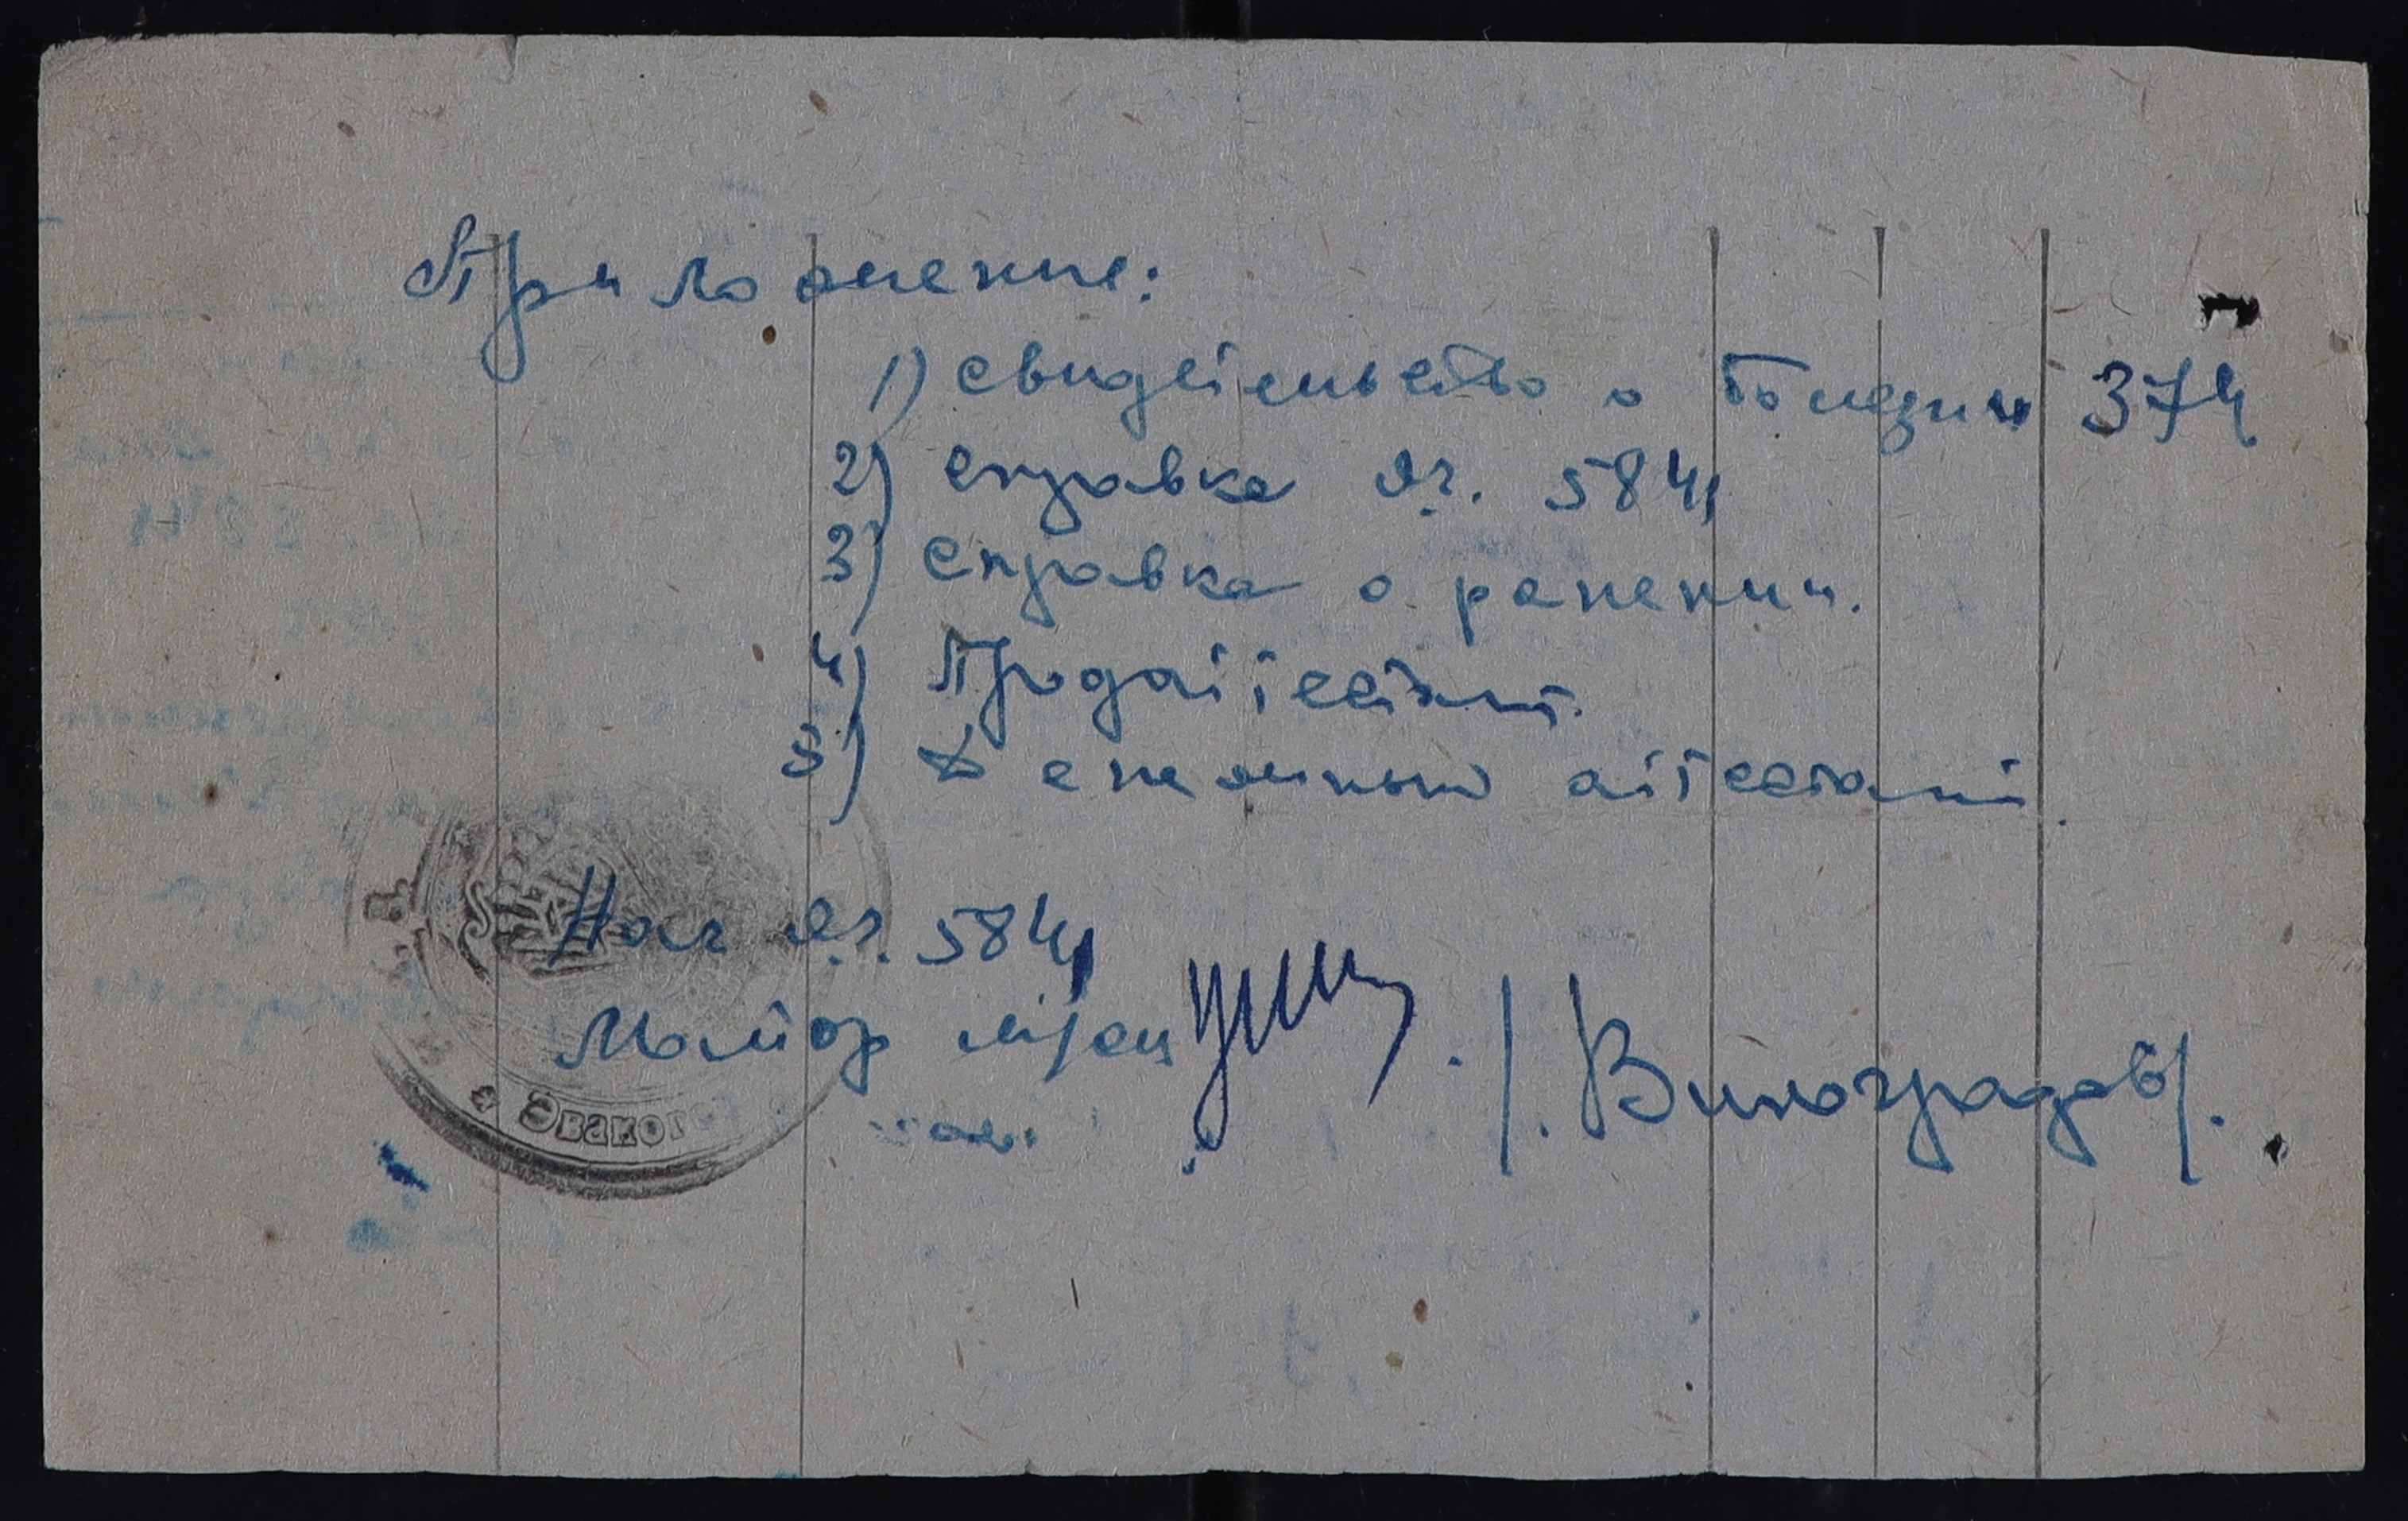 Приложение:
1) Свидетельство о болезни 374
2) Справка эг. 5841
3) Справка о ранении.
4) Продаттестат.
5) Денежный аттестат.
Нач эг. 5841
Майор м/сл
/. Виноградов/.
Эваког